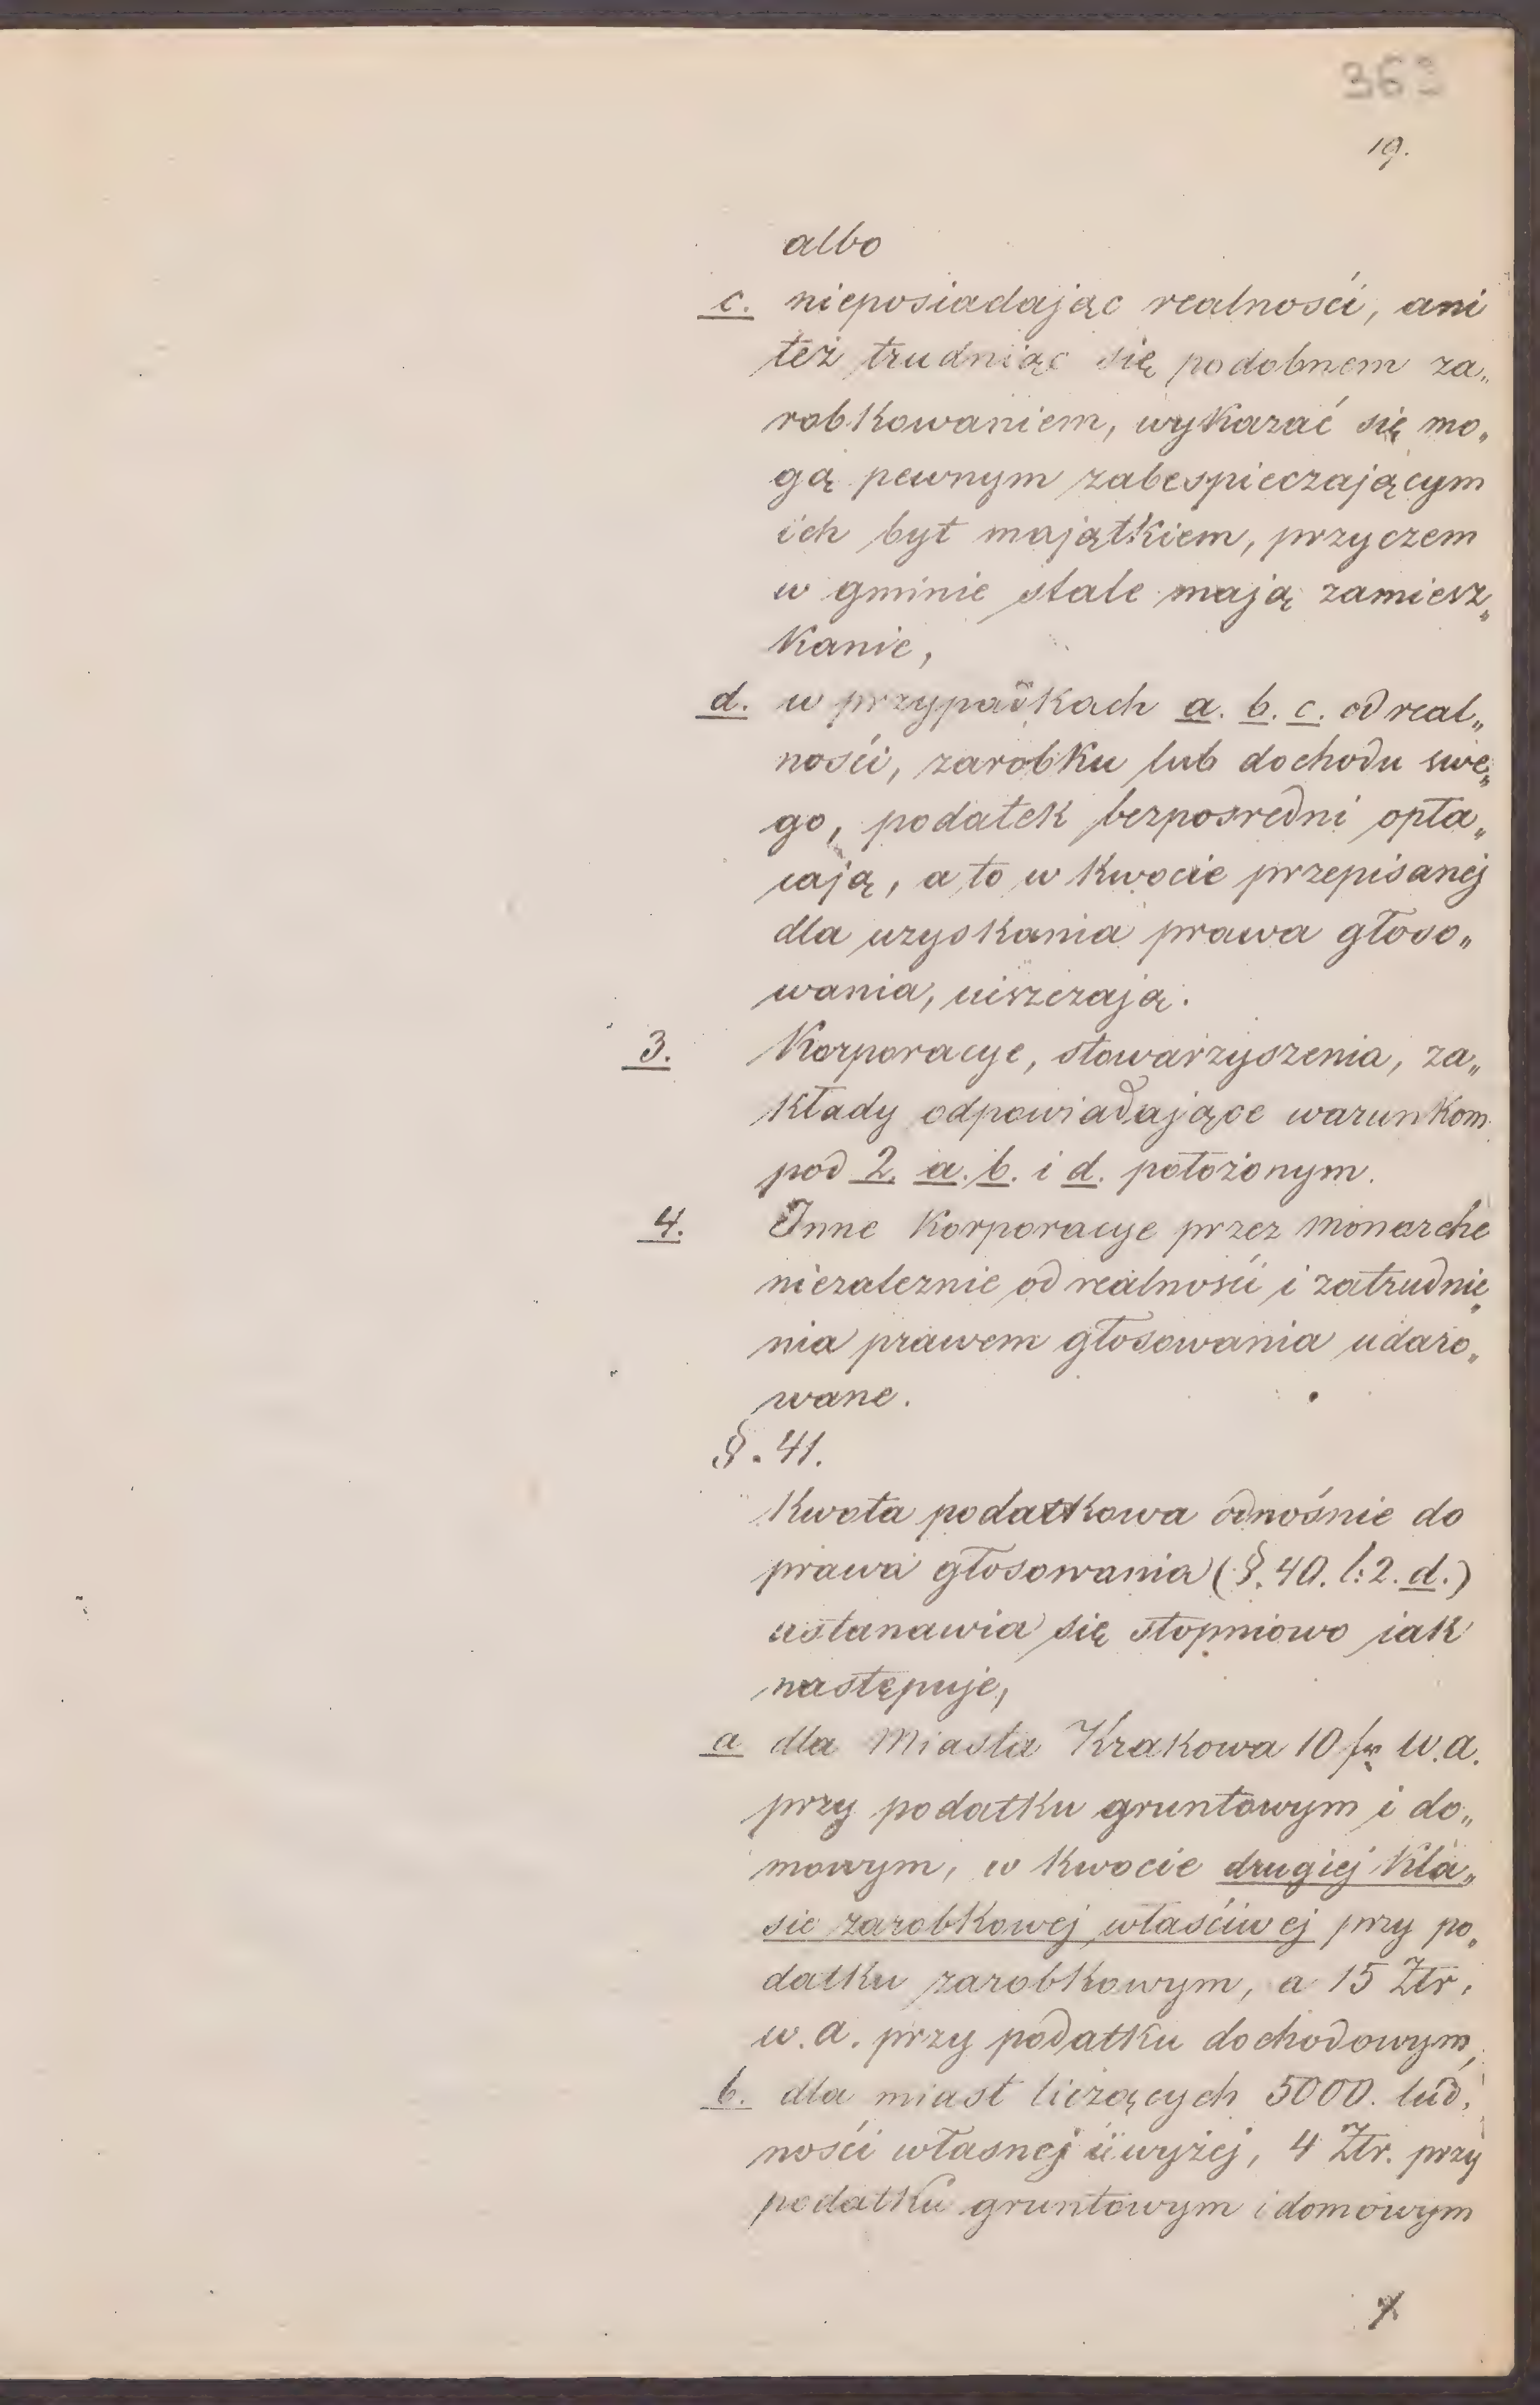 363
19.
albo
c. nieposiadając realności, ani
też trudniąc się podobnem za„
robkowaniem, wykazać się mo„
gą pewnym zabespieczającym
ich byt majątkiem, przyczem
w gminie stale mają zamiesz„
kanie,
d. w przypadkach a. b. c. od real„
ności, zarobku lub dochodu swe„
go, podatek bezposredni opła„
cają, a to w kwocie przepisanej
dla uzyskania prawa głoso„
wania, uiszczają.
3. Korporacye, stowarzyszenia, za„
kłady odpowiadające warunkom
pod 2. a. b. i d. położonym.
4. Inne Korporacye przez monarchę
niezaleznie od realności i zatrudnie„
nia prawem głosowania udaro„
wane.
§. 41.
Kwota podatkowa odnośnie do
prawa głosowania (§. 40. l: 2. d.)
ustanawia się stopniowo iak
następuje,
a dla Miasta Krakowa 10 w.a.
przy podatku gruntowym i do„
mowym, w kwocie drugiej kla„
sie zarobkowej właściwej przy po„
datku zarobkowym, a 15 Złr.
w. a. przy podatku dochodowym,
b. dla miast liczących 5000. lud„
ności własnej i wyżej, 4 Złr. przy
podatku gruntowym i domowym